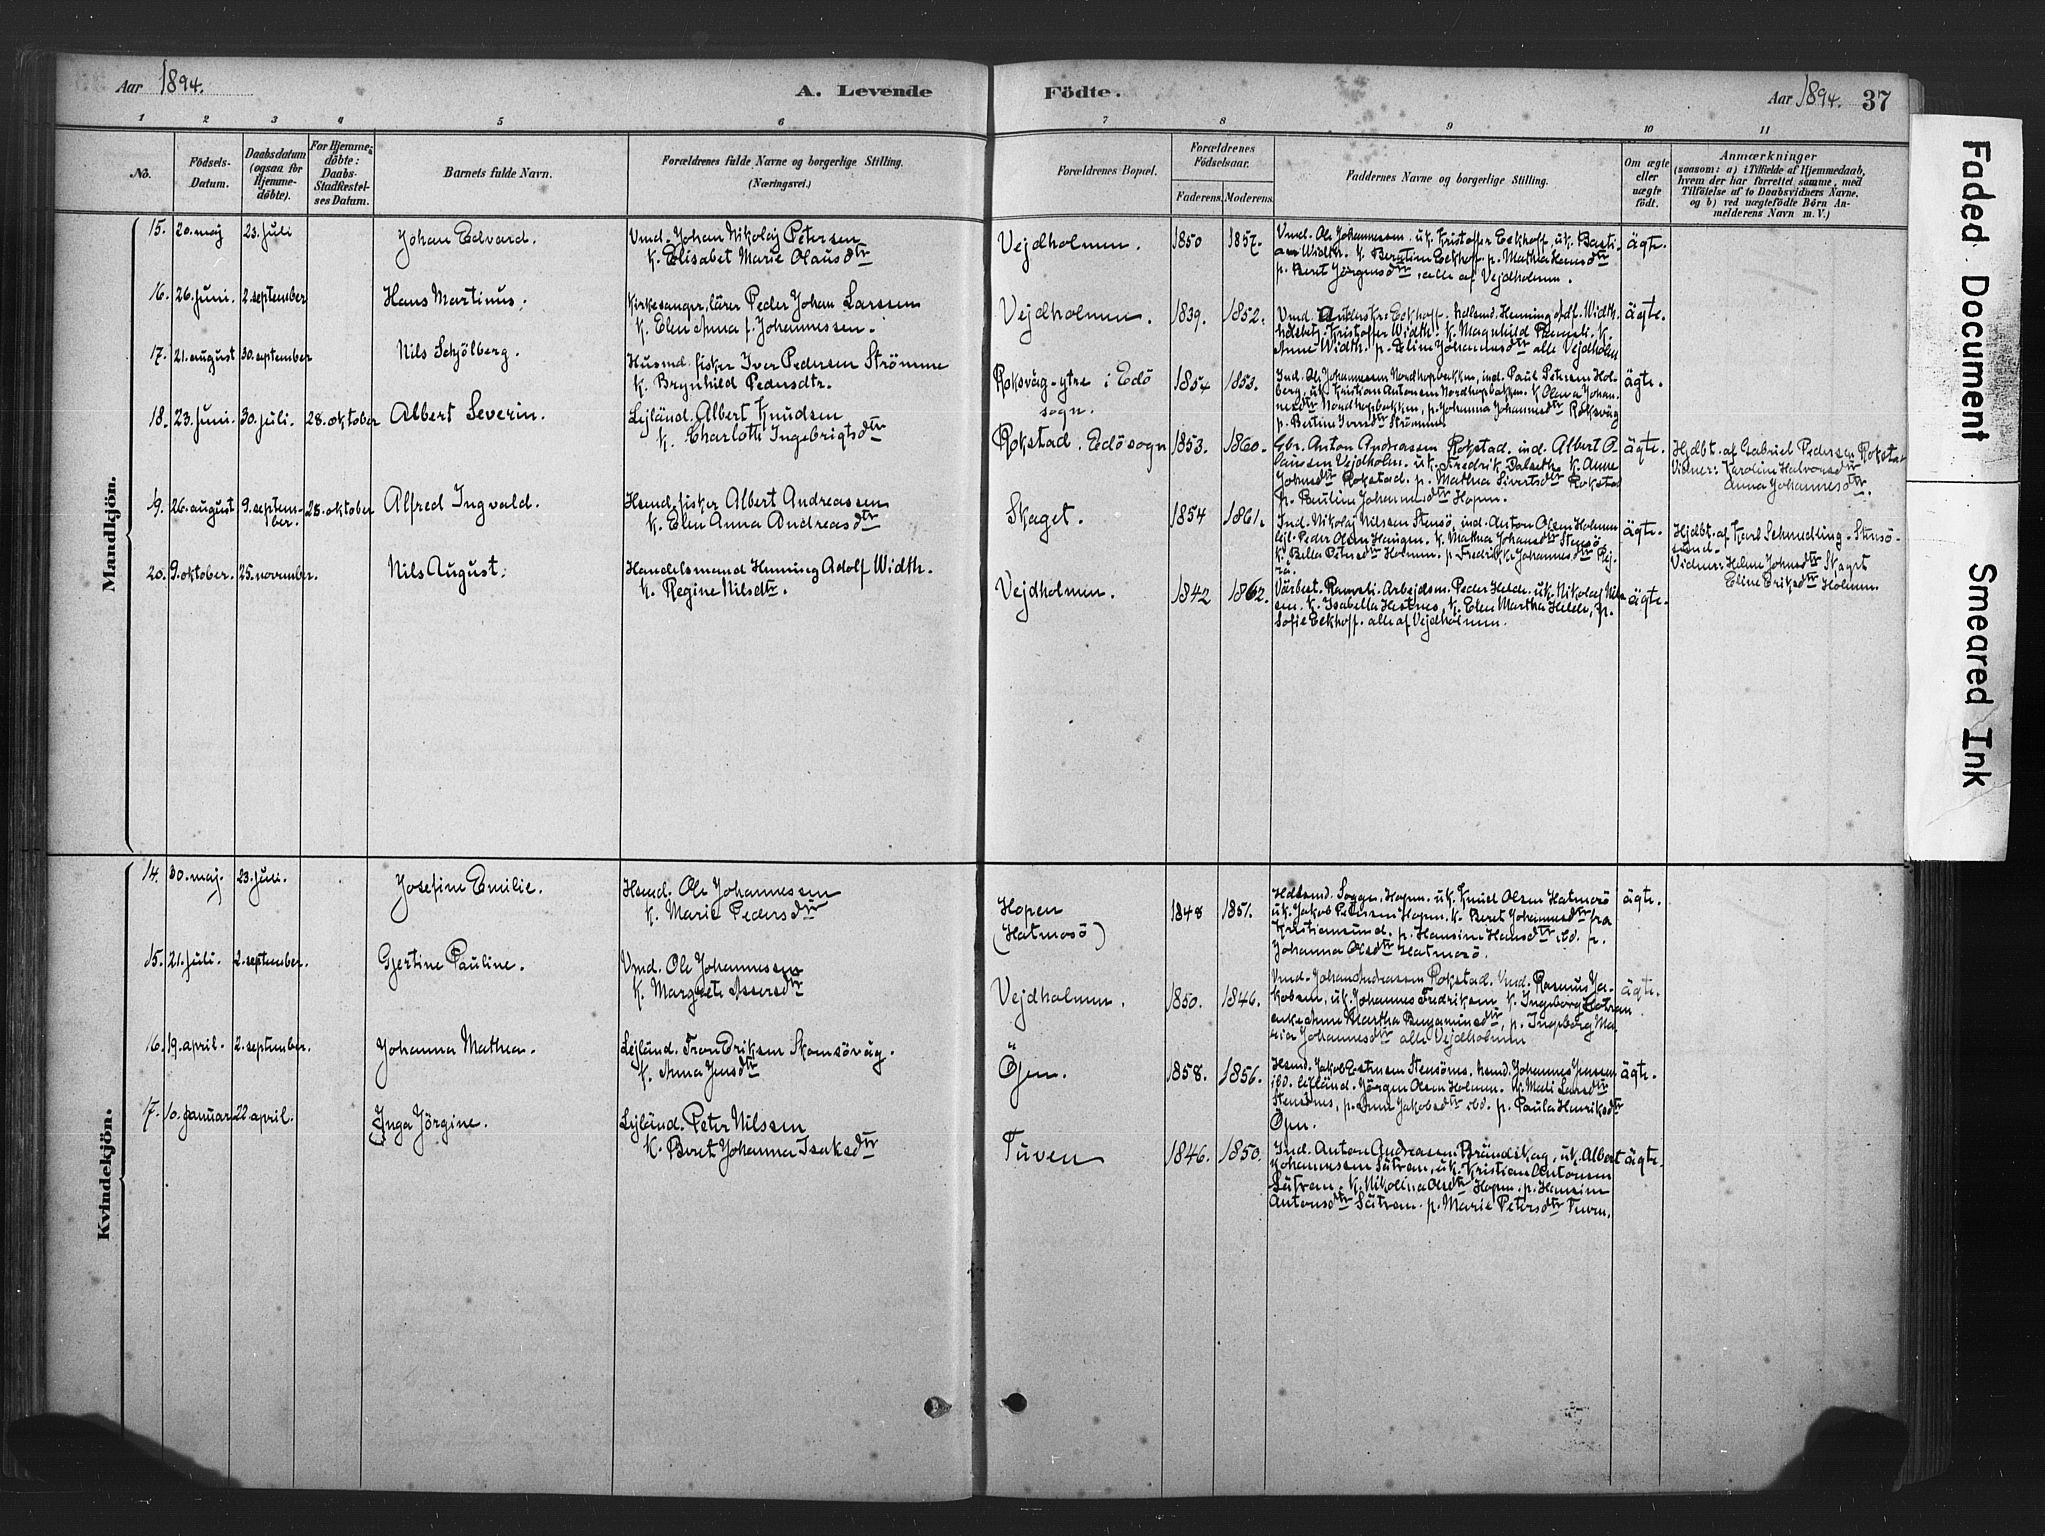 Aar 1894.
A. Levende Födte.
Aar 1894. 37
1 2 3 4 5 6 7 8 9 10 11
No.
Födsels-Datum.
Daabsdatum (ogsaa for Hjemme-döbte).
For Hjemme-döbte: Daabs-Stadfæstel-ses Datum.
Barnets fulde Navn.
Forældrenes fulde Navne og borgerlige Stilling.
(Næringsvei.)
Forældrenes Bopæl.
Forældrenes Födselsaar.
Faderens. Moderens.
Faddernes Navne og borgerlige Stilling.
Om ægte eller uægte födt.
Anmærkninger
(saasom: a) i Tilfælde af Hjemmedaab,
hvem der har forrettet samme, med
Tilföielse af to Daabsvidners Navne,
og b) ved uægtefödte Börn An-
melderens Navn m. V.)
Mandkjön.
15. 20. maj 23. juli Johan Edvard. Vmd. Johan Nikolaj Petersen
k. Elisabet Marie Olausdtr
Vejdholmen. 1850 1857. Vmd. Ole Johannessen. uk. Kristoffer Eekhoff, uk. Basti-
an Width. k. Berntine Eekhoff. p. Mathea Hansdtr
p. Beret Jörgensdtr, alle af Vejdholmen. ägte.
16. 26. juni. 2. september Hans Martinus. Kirkesanger, lärer Peder Johan Larssen
k. Elen Anna f. Johannessen.
Vejdholmen. 1839. 1852. Vmd. Anders Kr. Eekhoff. hdlsmd. Henning Adf. Width.
hdlsbetj. Kristoffer Width. k. Magnhild Ranveli. k.
Anne Width. p. Eline Johannesdtr alle Vejdholm ägte.
17. 21. august 30. september Nils Schjölberg. Husmd. fisker Iver Pedersen Strömme
k. Brynhild Pedersdtr.
Roksväg-ytre i Edö
sogn. 1854 1853. Ind. Ole Johannessen Nordhopbakken, ind. Paul Petersen Hol-
berg, uk. Kristian Antonsen Nordhopbakken. k. Olava Johan-
nesdtr Nordhopbakken, p. Johanna Johannesdtr Roksväg
p. Bertine Iversdtr Strömmen ägte.
18. 23. juni. 30. juli. 28. oktober Albert Severin. Lejländ. Albert Knudsen
k. Charlotte Ingebrigtsdtr
Rokstad. Edösogn 1853. 1860. Gbr. Anton Andreassen Rokstad. ind. Albert O-
laussen Vejdholm. uk. Fredrik Dalseth. k. Anne
Johnsdtr Rokstad. p. Mathea Sivertsdtr Rokstad
p. Pauline Johannesdtr Hopen. ägte.
Hjdbt. af Gabriel Pedersen Rokstad
Vidner: Karoline Halvorsdtr
Anna Johannesdtr.
19. 26. august 9. septem-
ber. 28. oktober Alfred Ingvald. Hsmd. fisker Albert Andreassen
k. Elen Anna Andreasdtr
Skaget. 1854 1861. Ind. Nikolaj Nilssen Stensö, ind. Anton Olsen Holmen
lejl. Peder Olsen Haugen. k. Mathea Johansdtr Stensö
k. Bella Petersdtr Holmen. p. Fredrikke Johannesdtr ägte.
Hjdbt. af Karl Schmedling - Stensö-
sund.
Vidner: Heline Johnsdtr Skaget
Eline Eriksdtr Holmen.
20. 9. oktober. 25. november. Nils August. Handelsmand Henning Adolf Width.
k. Regine Nilsdtr.
Vejdholmen. 1842 1862. Värbest. Ranveli. Arbejdsm. Peder Helde. uk. Nikolaj Nils-
sen. k. Isabella Hestnes, k. Elen Martha Helde, p.
Sofie Eekhoff. alle af Vejdholmen. ägte.
Kvindekjön.
14. 30. maj. 23. juli. Josefine Emilie. Hsmd. Ole Johannessen
k. Marie Pedersdtr
Hopen
(Hatmosö) 1848 1851. Hdlsmd. Sogge. Hopen. uk. Knud Olsen Hatmosö
uk. Jakob Petersen Hopen. k. Beret Johannesdtr fra
Kristiansund. p. Hansine Hansdtr ibd. p.
Johanna Olsdtr Hatmosö. ägte.
15. 21. juli. 2. september. Gjertine Pauline. Vmd. Ole Johannessen
k. Margrete Assersdtr
Vejdholmen. 1850. 1846. Vmd. Johan Andreassen Rokstad. Vmd. Rasmus Ja-
kobsen, uk. Johannes Fredriksen k. Ingeborg
enke Anne Martha Benjaminsdtr, p. Ingeborg Ma-
ria Johannesdtr alle Vejdholmen ägte.
16. 19. april. 2. september. Johanna Mathea. Lejländ. Tron Eriksen Skomsöväg.
k. Anna Jensdtr
Öjen. 1858. 1856. Hsmd. Jakob Estensen Stensönes, hsmd. Johannes Jenssen
ibd. lejländ. Jörgen Olsen Holmen. k. Mali Larsdtr
Stensönes, p. Anne Jakobsdtr ibd. p. Paula Henriksdtr
Öjen. ägte.
17. 10. januar 22 april. Inga Jörgine. Lejländ. Peter Nilssen
k. Beret Johanna Isaksdtr
Tuven 1846. 1850. Ind. Anton Andreassen Brändskag, uk. Albert
Johannessen Sätran, uk. Kristian Antonsen
Sätran. k. Nikolina Olsdtr Hopen. p. Hansine
Antonsdtr Sätran. p. Marie Petersdtr Tuven. ägte.
Faded Document
Smeared Ink